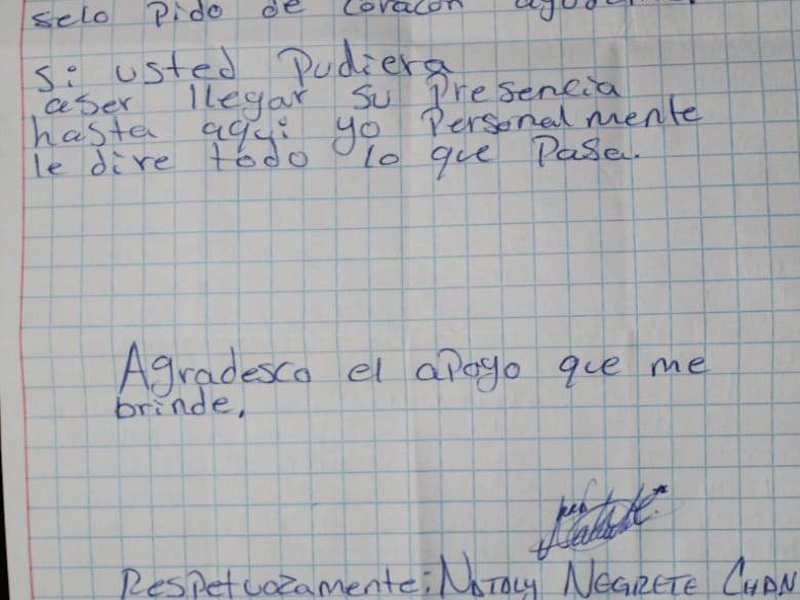 selo pido de corazon
si usted pudiera
aser llegar su presencia
hasta aqui yo personalmente
le dire todo lo que pasa.
Agradesco el apoyo que me
brinde,
Respetuozamente: NATALY NEGRETE CHAN